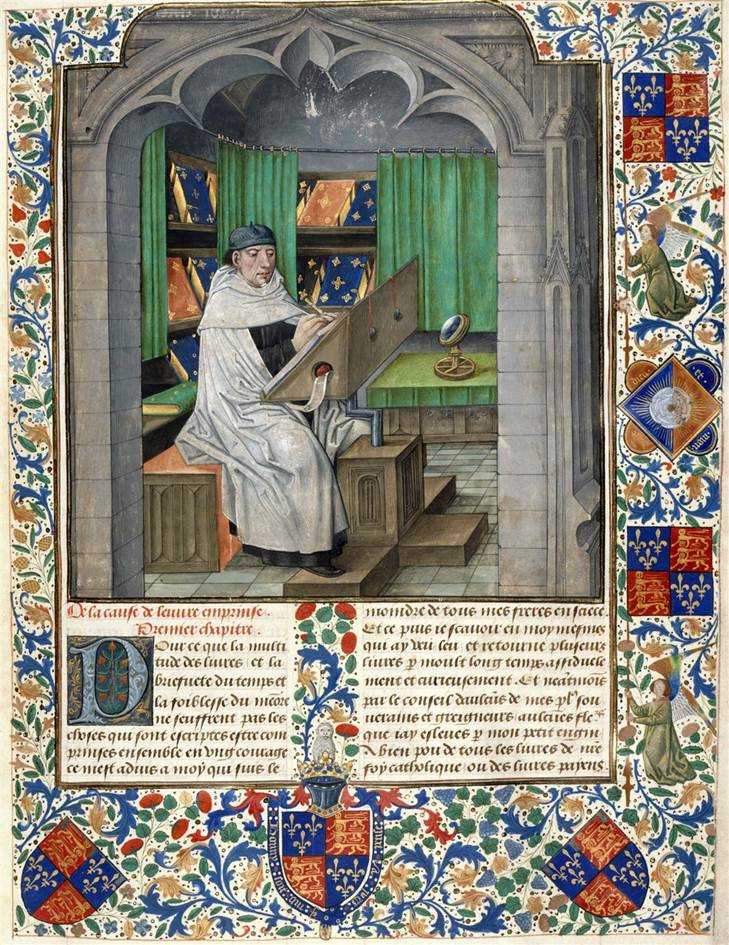 De la cause de leuure emprinse.
Premier chapitre.
Pour ce que la multi
tude des liures et la
briefuete du temps et
la foiblesse du memore
ne seuffrent pas les
choses qui sont escriptes estre com
prinses ensemble en vng courage
ce mest aduis a moy qui suis le
moindre de tous mes freres en ficce.
Et ce puis ie scauoir en moy mesmes
qui ay veu leu et retourne pluseurs
liures p moult long temps assiduele
ment et curieusement. Et neatmois
par le conseil daulcuns de mes pl9 sou
uerains et greigneurs aulcunes fle
que iay esleues p mon petit engin
A bien pou de tous les liures de nre
foy catholique ou des liures payens.
dieu et mon